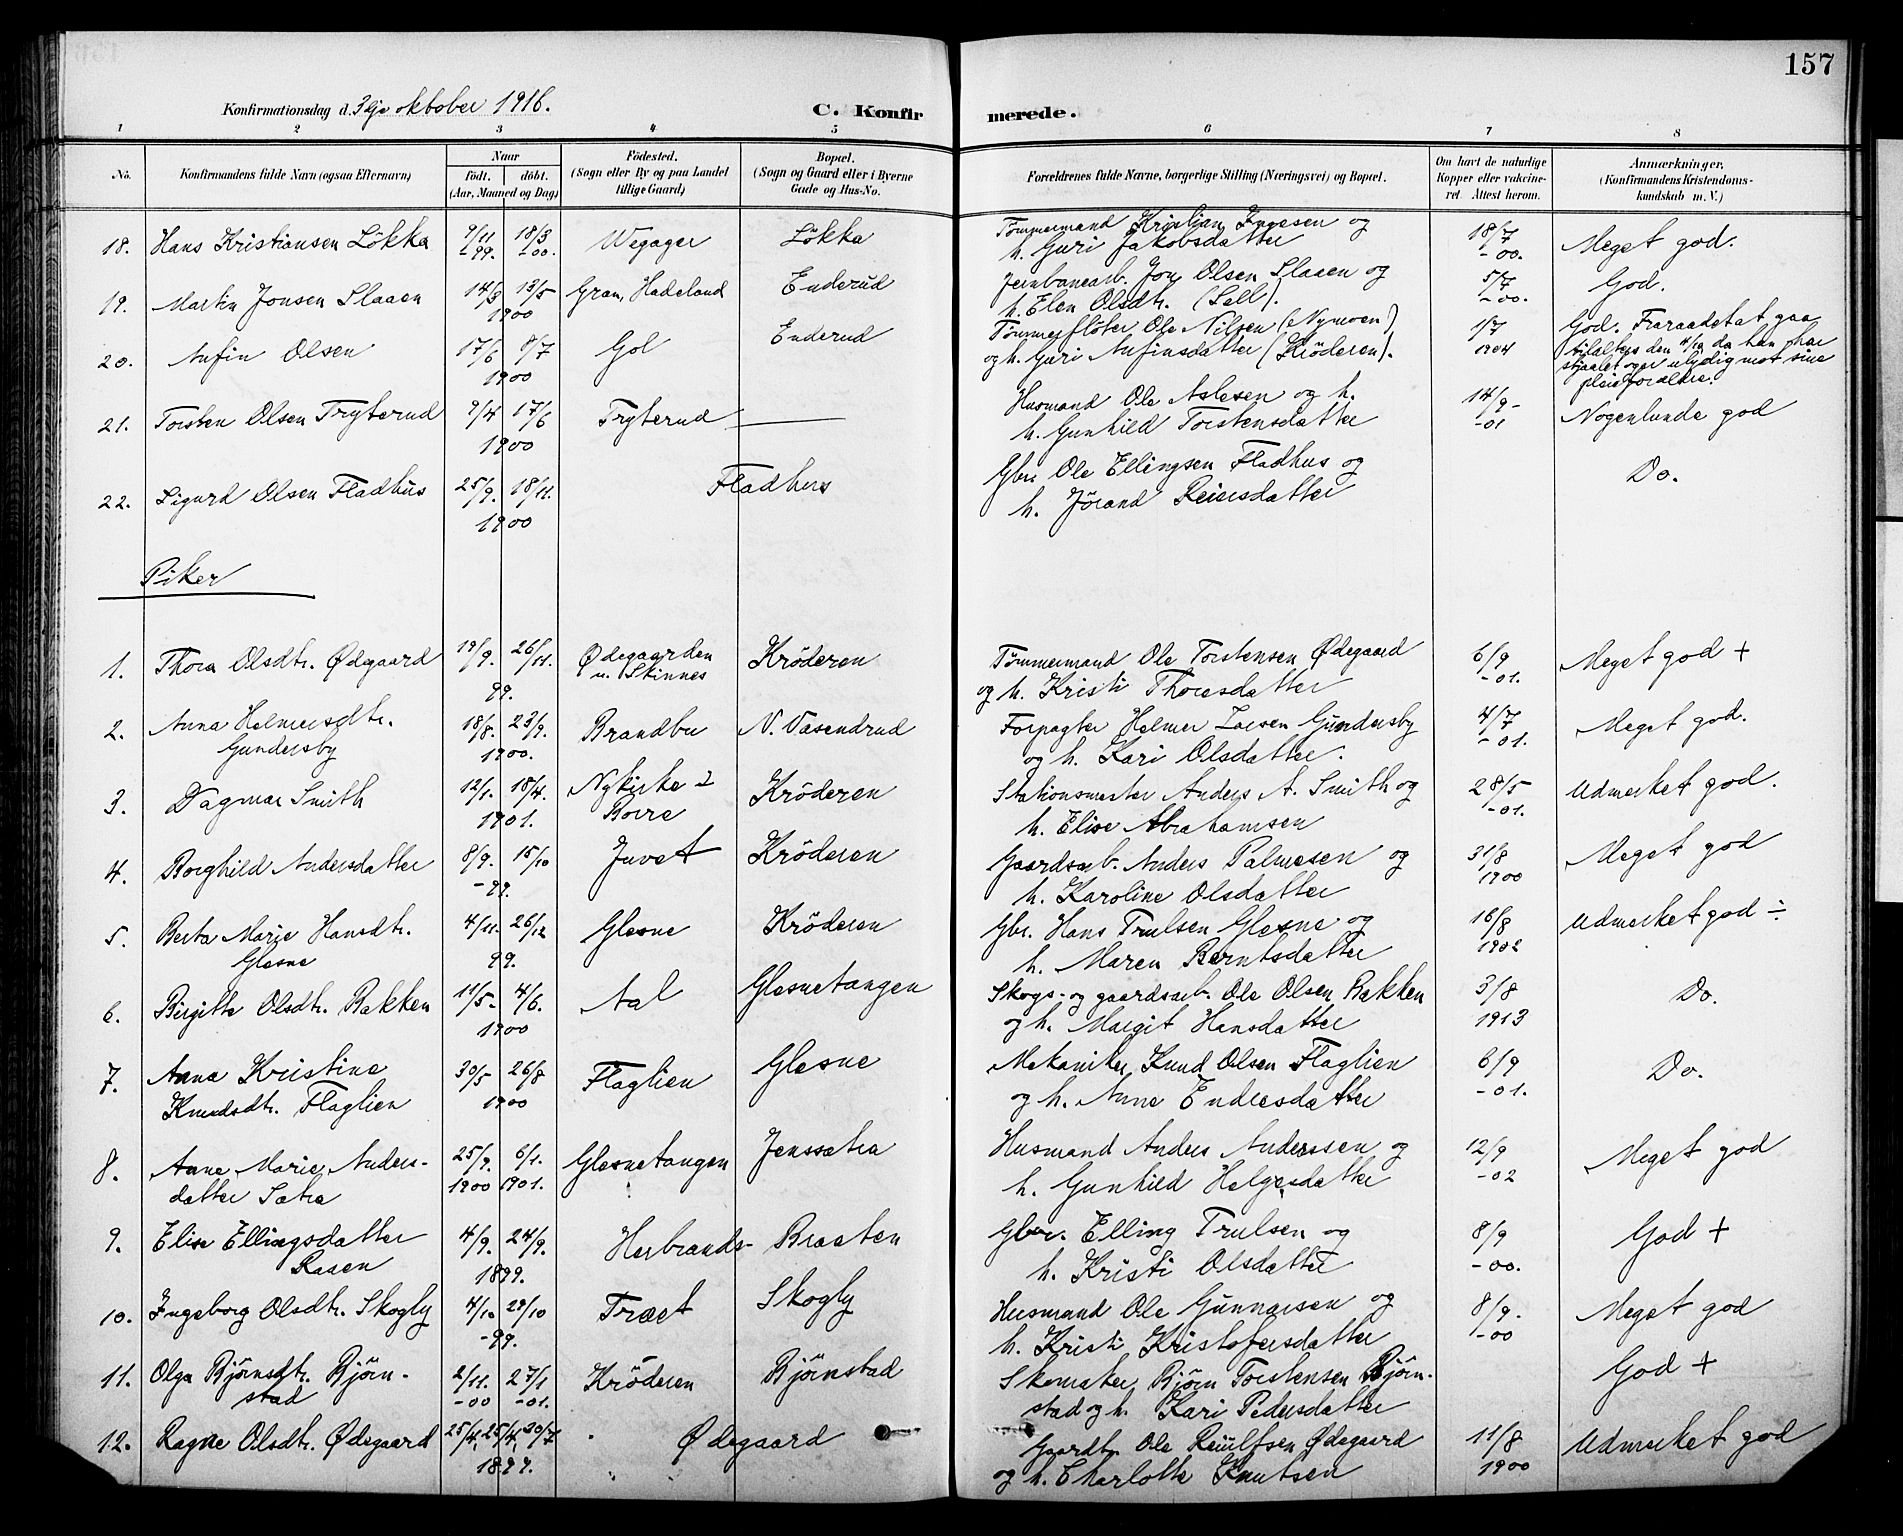 157
Konfirmationsdag d. 3dje oktober 1916. C. Konfirmerede.
1 2 3 4 5 6 7 8
No. Konfirmandens fulde Navn (ogsaa Efternavn) Naar født. døbt. (Aar, Maaned og Dag) Fødested. (Sogn eller By og paa Landet tillige Gaard) Bopæl. (Sogn og Gaard eller i Byerne Gade og Hus-No. Forældrenes fulde Navne, borgerlige Stilling (Næringsvei) og Bopæl. Om havt de naturlige Kopper eller vakcineret. Attest herom. Anmærkninger. (Konfirmandens Kristendomskundskab m. V.)
18. Hans Kristiansen Lökka 9/11 -99. 18/3 -00. Wegager Lökka Tömmermand Kristian Ingesen og h. Guri Jakobsdatter 18/7 -00. Meget god.
19. Martin Jonsen Slaaen 14/3 13/5 1900 Gran, Hadeland Enderud Jernbanearb. Jon Olsen Slaaen og h. Elen Olsdtr. (Sell). 5/7 -00. God.
20. Anfin Olsen 17/6 8/7 1900 Gol Enderud Tømmerfløter Ole Nilsen (Nymoen) og h. Guri Anfinsdatter (Kröderen). 1/7 1904 God. Fraraadet at gaa tilalters den 4/10 da han har stjaalet og er ulydig mot sine pleieforældre.
21. Torsten Olsen Tryterud 9/4 17/6 1900 Tryterud — Husmand Ole Aslesen og h. h. Gunhild Torstensdatter 14/9 -01 Nogenlunde god
22. Sigurd Olsen Fladhus 25/9. 18/11. 1900 Fladhus Gbr. Ole Ellingsen Fladhus og h. Jørand Reiersdatter Do.
Piker
1. Thora Olsdtr. Ødegaard 19/9. 26/11. 99. Ødegaarden u. Skinnes Kröderen Tömmermand Ole Torstensen Ødegaard og h. Kristi Thoresdatter 6/9 -01. Meget god +
2. Anna Helmersdtr. Gundersby 18/8. 23/9. 1900. Brandbu N. Vasendrud Forpagter Helmer Larsen Gundersby og h. Kari Olsdatter. 4/7 -01. Meget god.
3. Dagmar Smith 12/1. 18/4. 1901. Nykirke i Borre Kröderen Stationsmester Anders A. Smith og h. Elise Abrahamsen 28/5 -01. Udmerket god.
4. Borghild Andersdatter 8/9. 15/10 -99. Juvet Kröderen Gaardsarb. Anders Palmesen og h. Karoline Olsdatter 31/8 1900 Meget god
5. Berta Marie Hansdtr. Glesne 4/11. 26/12 99. Glesne Kröderen Gbr. Hans Trulsen Glesne og h. Maren Berntsdatter 16/8 1902 Udmerket god ÷
6. Birgitte Olsdtr. Bakken 11/5. 4/6. 1900 Aal Glesnetangen Skogs- og gaardsarb. Ole Olsen Bakken og h. Margit Hansdatter 3/8 1913 Do.
7. Anna Kristine Knudsdtr. Flaglien 30/5 26/8 1900 Flaglien Glesne Mekaniker Knud Olsen Flaglien og h. Anne Endresdatter 6/9 -01. Do.
8. Anne Marie Andersdatter Sætra 25/9. 1900 6/1. 1901. Glesnetangen Jenssætra Husmand Anders Anderssen og h. Gunhild Helgesdatter 12/9 -02 Meget god
9. Elise Ellingsdatter Raaen 4/9. 24/9. 1899. Herbrands- Braaten Gbr. Elling Trulsen og h. Kristi Olsdatter 8/9 -00. God +
10. Ingeborg Olsdtr. Skogly 4/10 29/10 -99. Træet Skogly Husmand Ole Gunnarsen og h. Kristi Kristofersdatter 8/9. -00 Meget god
11. Olga Bjørnsdtr. Bjørnstad 2/11. -00 27/1 -01. Kröderen Bjørnstad Skomaker Bjørn Torstensen Bjørnstad og h. Kari Pedersdatter God +
12. Ragne Olsdtr. Ødegaard 25/4, 25/4, 30/7 1899. Ødegaard Gaardbr. Ole Reiulfsen Ødegaard og h. Charlotte Knutsen 11/8 1900 Udmerket god